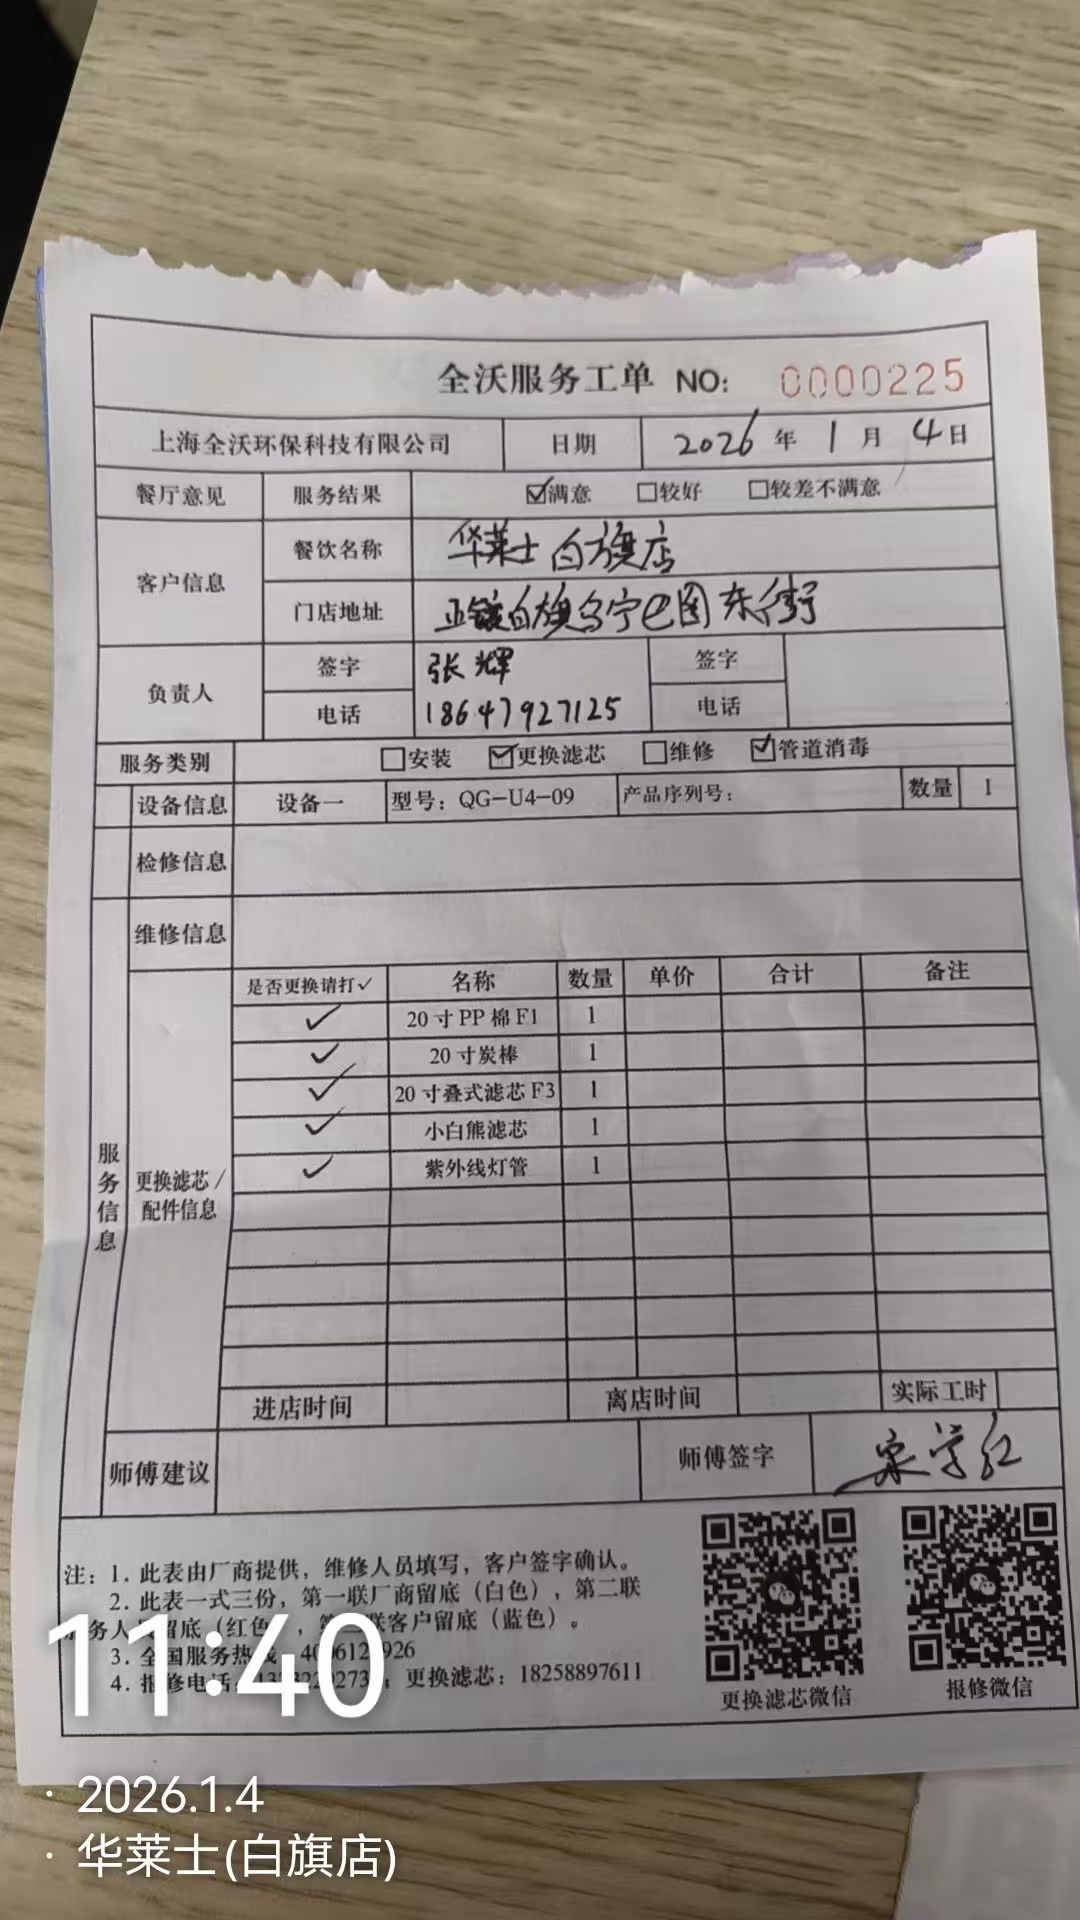 全沃服务工单 NO: 0000225
上海全沃环保科技有限公司 日期 2026 年 1 月 4 日
餐厅意见 服务结果 ☑满意 □较好 □较差不满意
客户信息 餐饮名称 华莱士白旗店
门店地址 正镶白旗乌宁巴图东街
负责人 签字 张辉 签字
电话 18647927125 电话
服务类别 □安装 ☑更换滤芯 □维修 ☑管道消毒
设备信息 设备一 型号：QG-U4-09 产品序列号： 数量 1
检修信息
维修信息
服务信息
更换滤芯/配件信息
是否更换请打✓ 名称 数量 单价 合计 备注
✓ 20寸PP棉F1 1
✓ 20寸炭棒 1
✓ 20寸叠式滤芯F3 1
✓ 小白熊滤芯 1
✓ 紫外线灯管 1
进店时间 离店时间 实际工时
师傅建议 师傅签字
注：1．此表由厂商提供，维修人员填写，客户签字确认。
2．此表一式三份，第一联厂商留底（白色），第二联
务人 留底（红色），第 联客户留底（蓝色）。
3．全国服务热线
4．报修电话 ；更换滤芯：18258897611
更换滤芯微信 报修微信
11:40
· 2026.1.4
· 华莱士(白旗店)